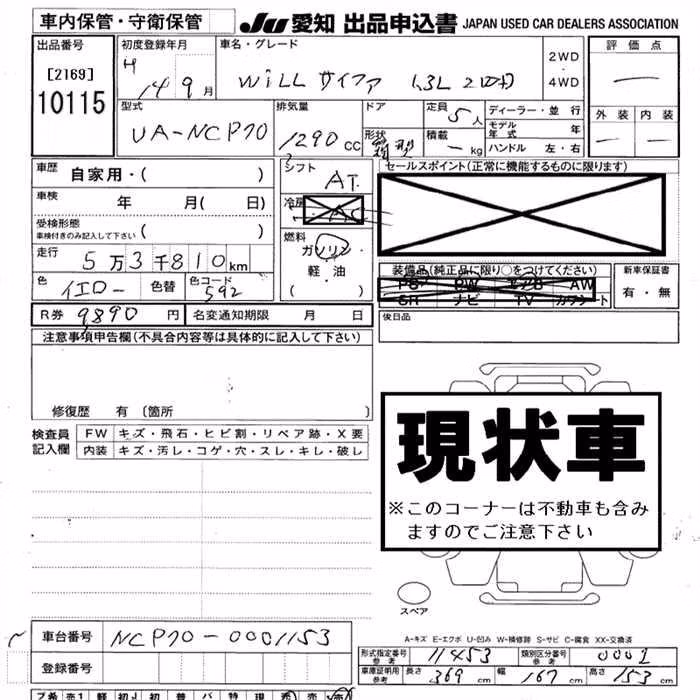 車内保管・守衛保管 JU 愛知 出品申込書 JAPAN USED CAR DEALERS ASSOCIATION
出品番号 [2169] 10115
初度登録年月 H 14 9月
車名・グレード WiLL サイファ 1.3L 2WD 4WD
評価点 —
型式 UA-NCP70
排気量 1290 CC
ドア 形状
定員 5人
積載 — kg
ディーラー・並行
モデル年式 年
ハンドル 左・右
外装 — 内装 —
車歴 自家用・( )
シフト AT
セールスポイント(正常に機能するものに限ります)
車検 年 月( 日)
冷房 AC
受検形態 車検付きのみ記入して下さい ( )
燃料 ガソリン 軽油 ( )
走行 5万3千810km
装備品(純正品に限り○をつけてください)
PS PW エアB AW
SR ナビ TV カワシート
新車保証書 有・無
色 イエロー 色替 色コード 592
R券 9890円 名変通知期限 月 日
後日品
注意事項申告欄(不具合内容等は具体的に記入して下さい)
修復歴 有(箇所 )
検査員記入欄
FW キズ・飛石・ヒビ割・リペア跡・X要
内装 キズ・汚レ・コゲ・穴・スレ・キレ・破レ
現状車
※このコーナーは不動車も含み
ますのでご注意下さい
スペア
A-キズ E-エクボ U-凹み W-補修跡 S-サビ C-腐食 XX-交換済
車台番号 NCP70-0001153
登録番号
形式指定番号 参考 11453 類別区分番号 参考 0001
車庫証明用 参考 長さ 369 cm 幅 167 cm 高さ 153 cm